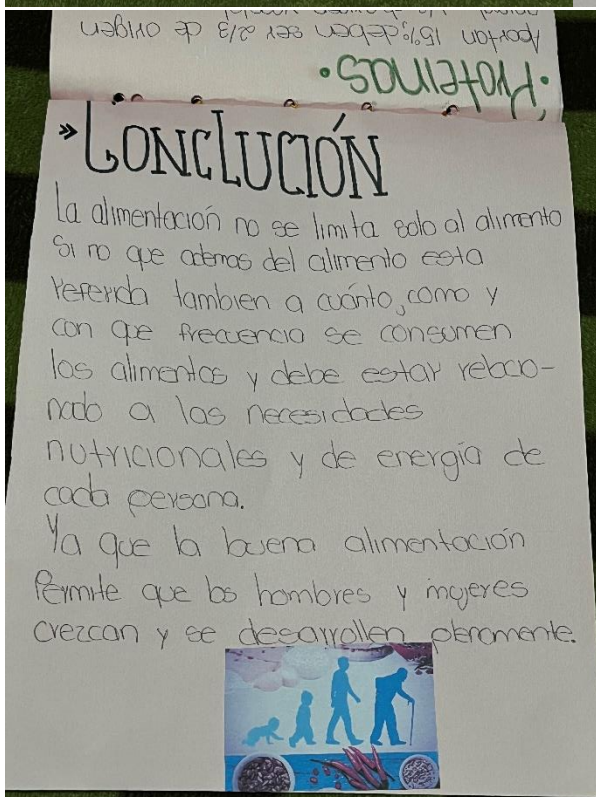 Aportan 15% deben ser 2/3 de origen
• Proteínas •
» CONCLUCIÓN
La alimentación no se limita solo al alimento
Si no que ademas del alimento esta
referida tambien a cuánto, como y
con que frecuencia se consumen
los alimentos y debe estar relacio-
nado a las necesidades
nutricionales y de energía de
cada persona.
Ya que la buena alimentación
Permite que los hombres y mujeres
crezcan y se desarrollen plenamente.